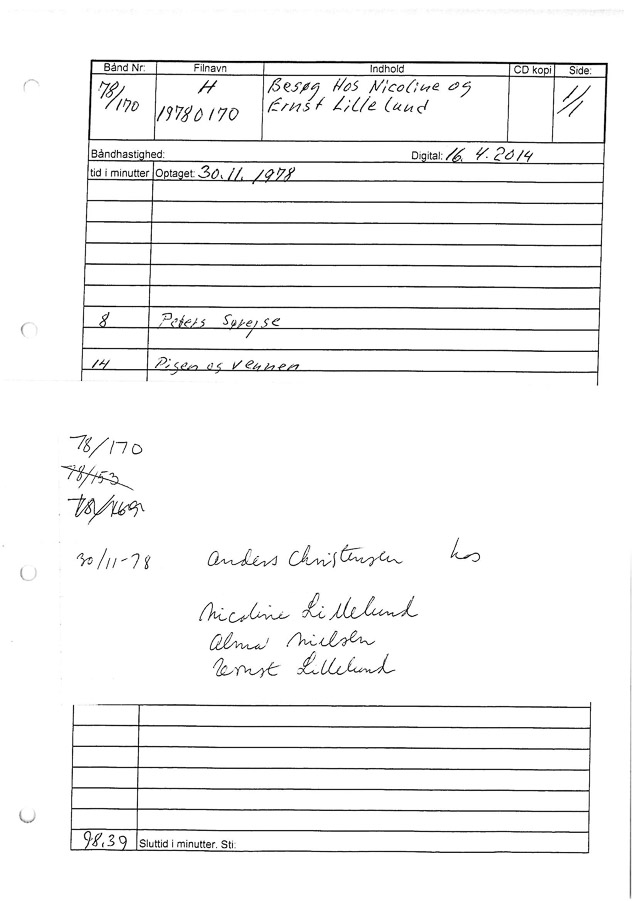 Bånd Nr: Filnavn Indhold CD kopi Side:
78/170 H Besøg Hos Nicoline og 1/1
19780170 Ernst Lillelund
Båndhastighed: Digital: 16. 4. 2014
tid i minutter Optaget: 30.11. 1978
8 Peters
14 Pigen og vennen
78/170
78/153
30/11-78 Anders Christensen hos
Nicoline Lillelund
Alma Nielsen
Ernst Lillelund
98.39 Sluttid i minutter. Sti: